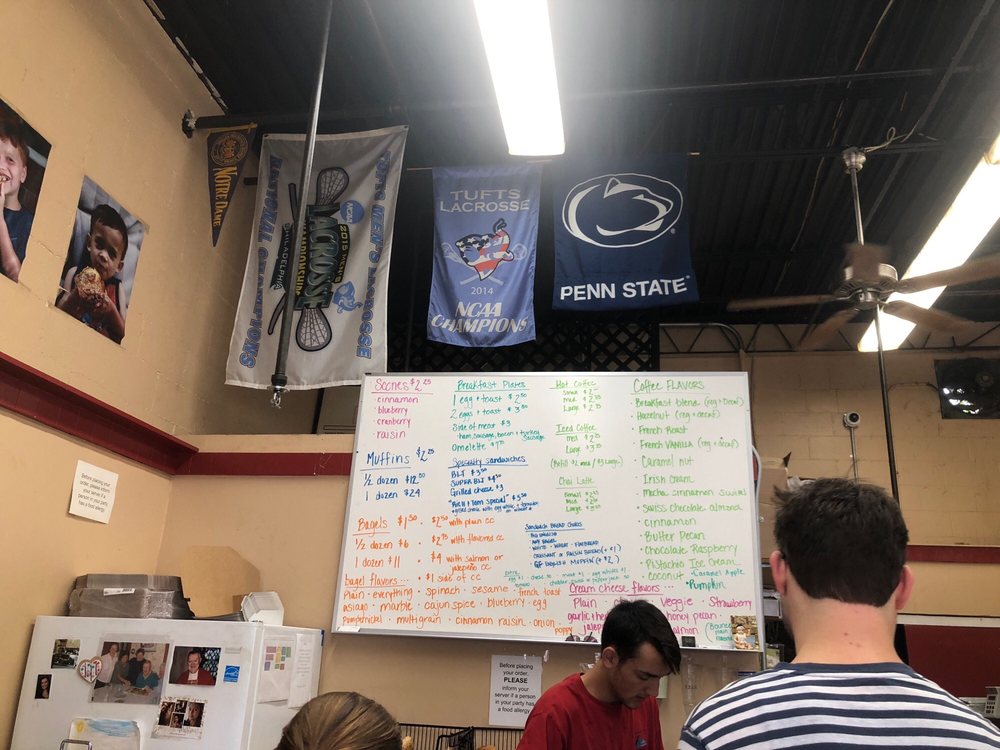 NOTRE DAME
TUFTS MEN'S LACROSSE
NATIONAL CHAMPIONS
NCAA
2015 MEN'S
LACROSSE
CHAMPIONSHIP
PHILADELPHIA
TUFTS
LACROSSE
2014
NCAA
CHAMPIONS
PENN STATE
Before placing
your order,
please inform
your server if a
person in your
party has a food
allergy.
Scones $2.25
cinnamon
blueberry
cranberry
raisin
Muffins $2.25
1/2 dozen $12.00
1 dozen $24
Bagels $1.50
1/2 dozen $6
1 dozen $11
• $2.50 with plain cc
• $2.75 with flavored cc
• $4 with salmon or
jalapeño cc
• $1 side of cc
bagel flavors...
Plain · everything · spinach · sesame · french toast
asiago · marble · cajun spice · blueberry · egg
Pumpernickel · multigrain · cinnamon raisin · onion · poppy
Breakfast Plates
1 egg + toast $2.50
2 eggs + toast $3.50
Side of meat $3
ham, sausage, bacon + turkey sausage
Omelette
Specialty Sandwiches
BLT $3.50
SUPER BLT
Grilled cheese $3
"Rich + Tom Special" $3.50
Sandwich BREAD CHOICES
ANY BAGEL
WHITE · WHEAT · FLATBREAD
CROISSANT or RAISIN BREAD (+ $1)
GF ENGLISH MUFFIN (+ $2)
Hot Coffee
Small
med
Large
Iced Coffee
med
Large
Chai Latte
Small
Med
Large
Coffee FLAVORS
• Breakfast blend (reg + decaf)
• Hazelnut (reg + decaf)
• French Roast
• French Vanilla (reg + decaf)
• Caramel nut
• Irish Cream
• Mocha cinnamon swirl
• Swiss Chocolate almond
• cinnamon
• Butter Pecan
• Chocolate Raspberry
• Pistachio Ice Cream
• coconut • Caramel Apple
• Pumpkin
Cream cheese flavors...
Plain Veggie · Strawberry
honey pecan
Before placing
your order,
PLEASE
inform your
server if a person
in your party has
a food allergy